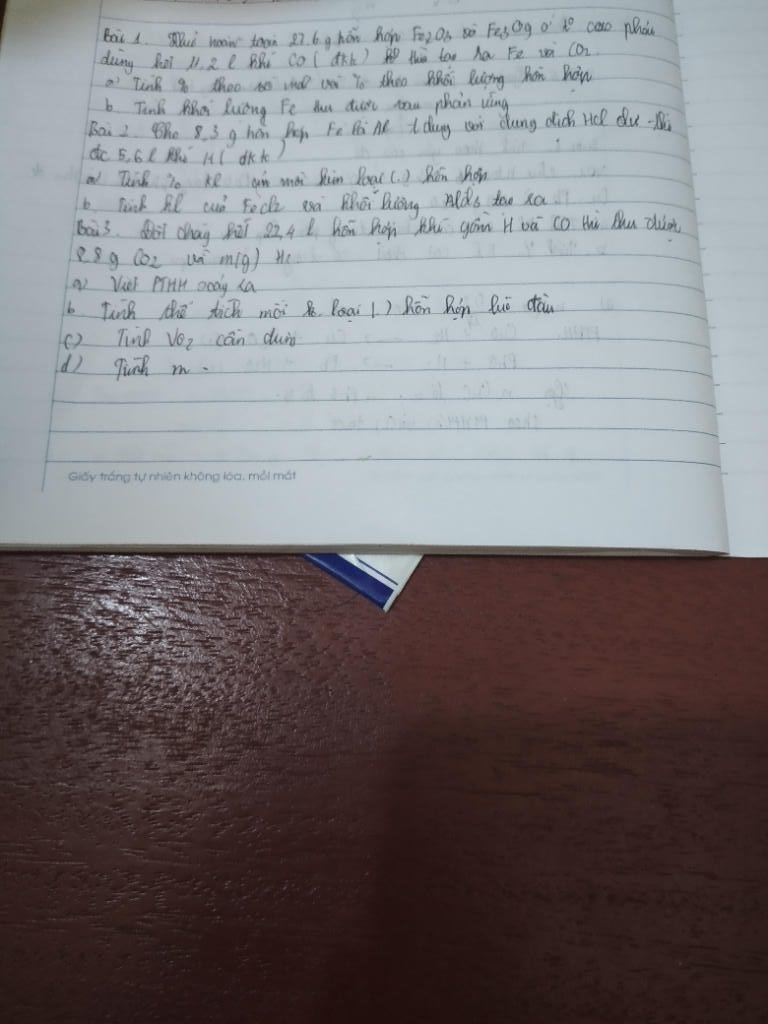 Bài 1. Khử hoàn toàn 27,6 g hỗn hợp Fe2O3 và Fe3O4 ở t° cao phải
dùng hết 11,2 l khí CO (đkk) thu tạo ra Fe và CO2
a) Tính % theo số mol và % theo khối lượng hỗn hợp
b Tính khối lượng Fe thu được sau phản ứng
Bài 2. Cho 8,3 g hỗn hợp Fe và Al t dụng với dung dịch Hcl dư thu
đc 5,6 l khí H (đkk)
a) Tính % kl của mỗi kim loại (.) hỗn hợp
b. Tính kl của Fecl2 và khối lượng Alcl3 tạo ra
Bài 3. Đốt cháy hết 22,4 l hỗn hợp khí gồm H và CO thì thu được
8.8 g CO2 và m(g) H
a) Viết PTHH xảy ra
b Tính thể tích mỗi loại (.) hỗn hợp lúc đầu
c) Tính Vo2 cần dùng
d) Tính m .
Giấy trắng tự nhiên không lóa, mỏi mắt